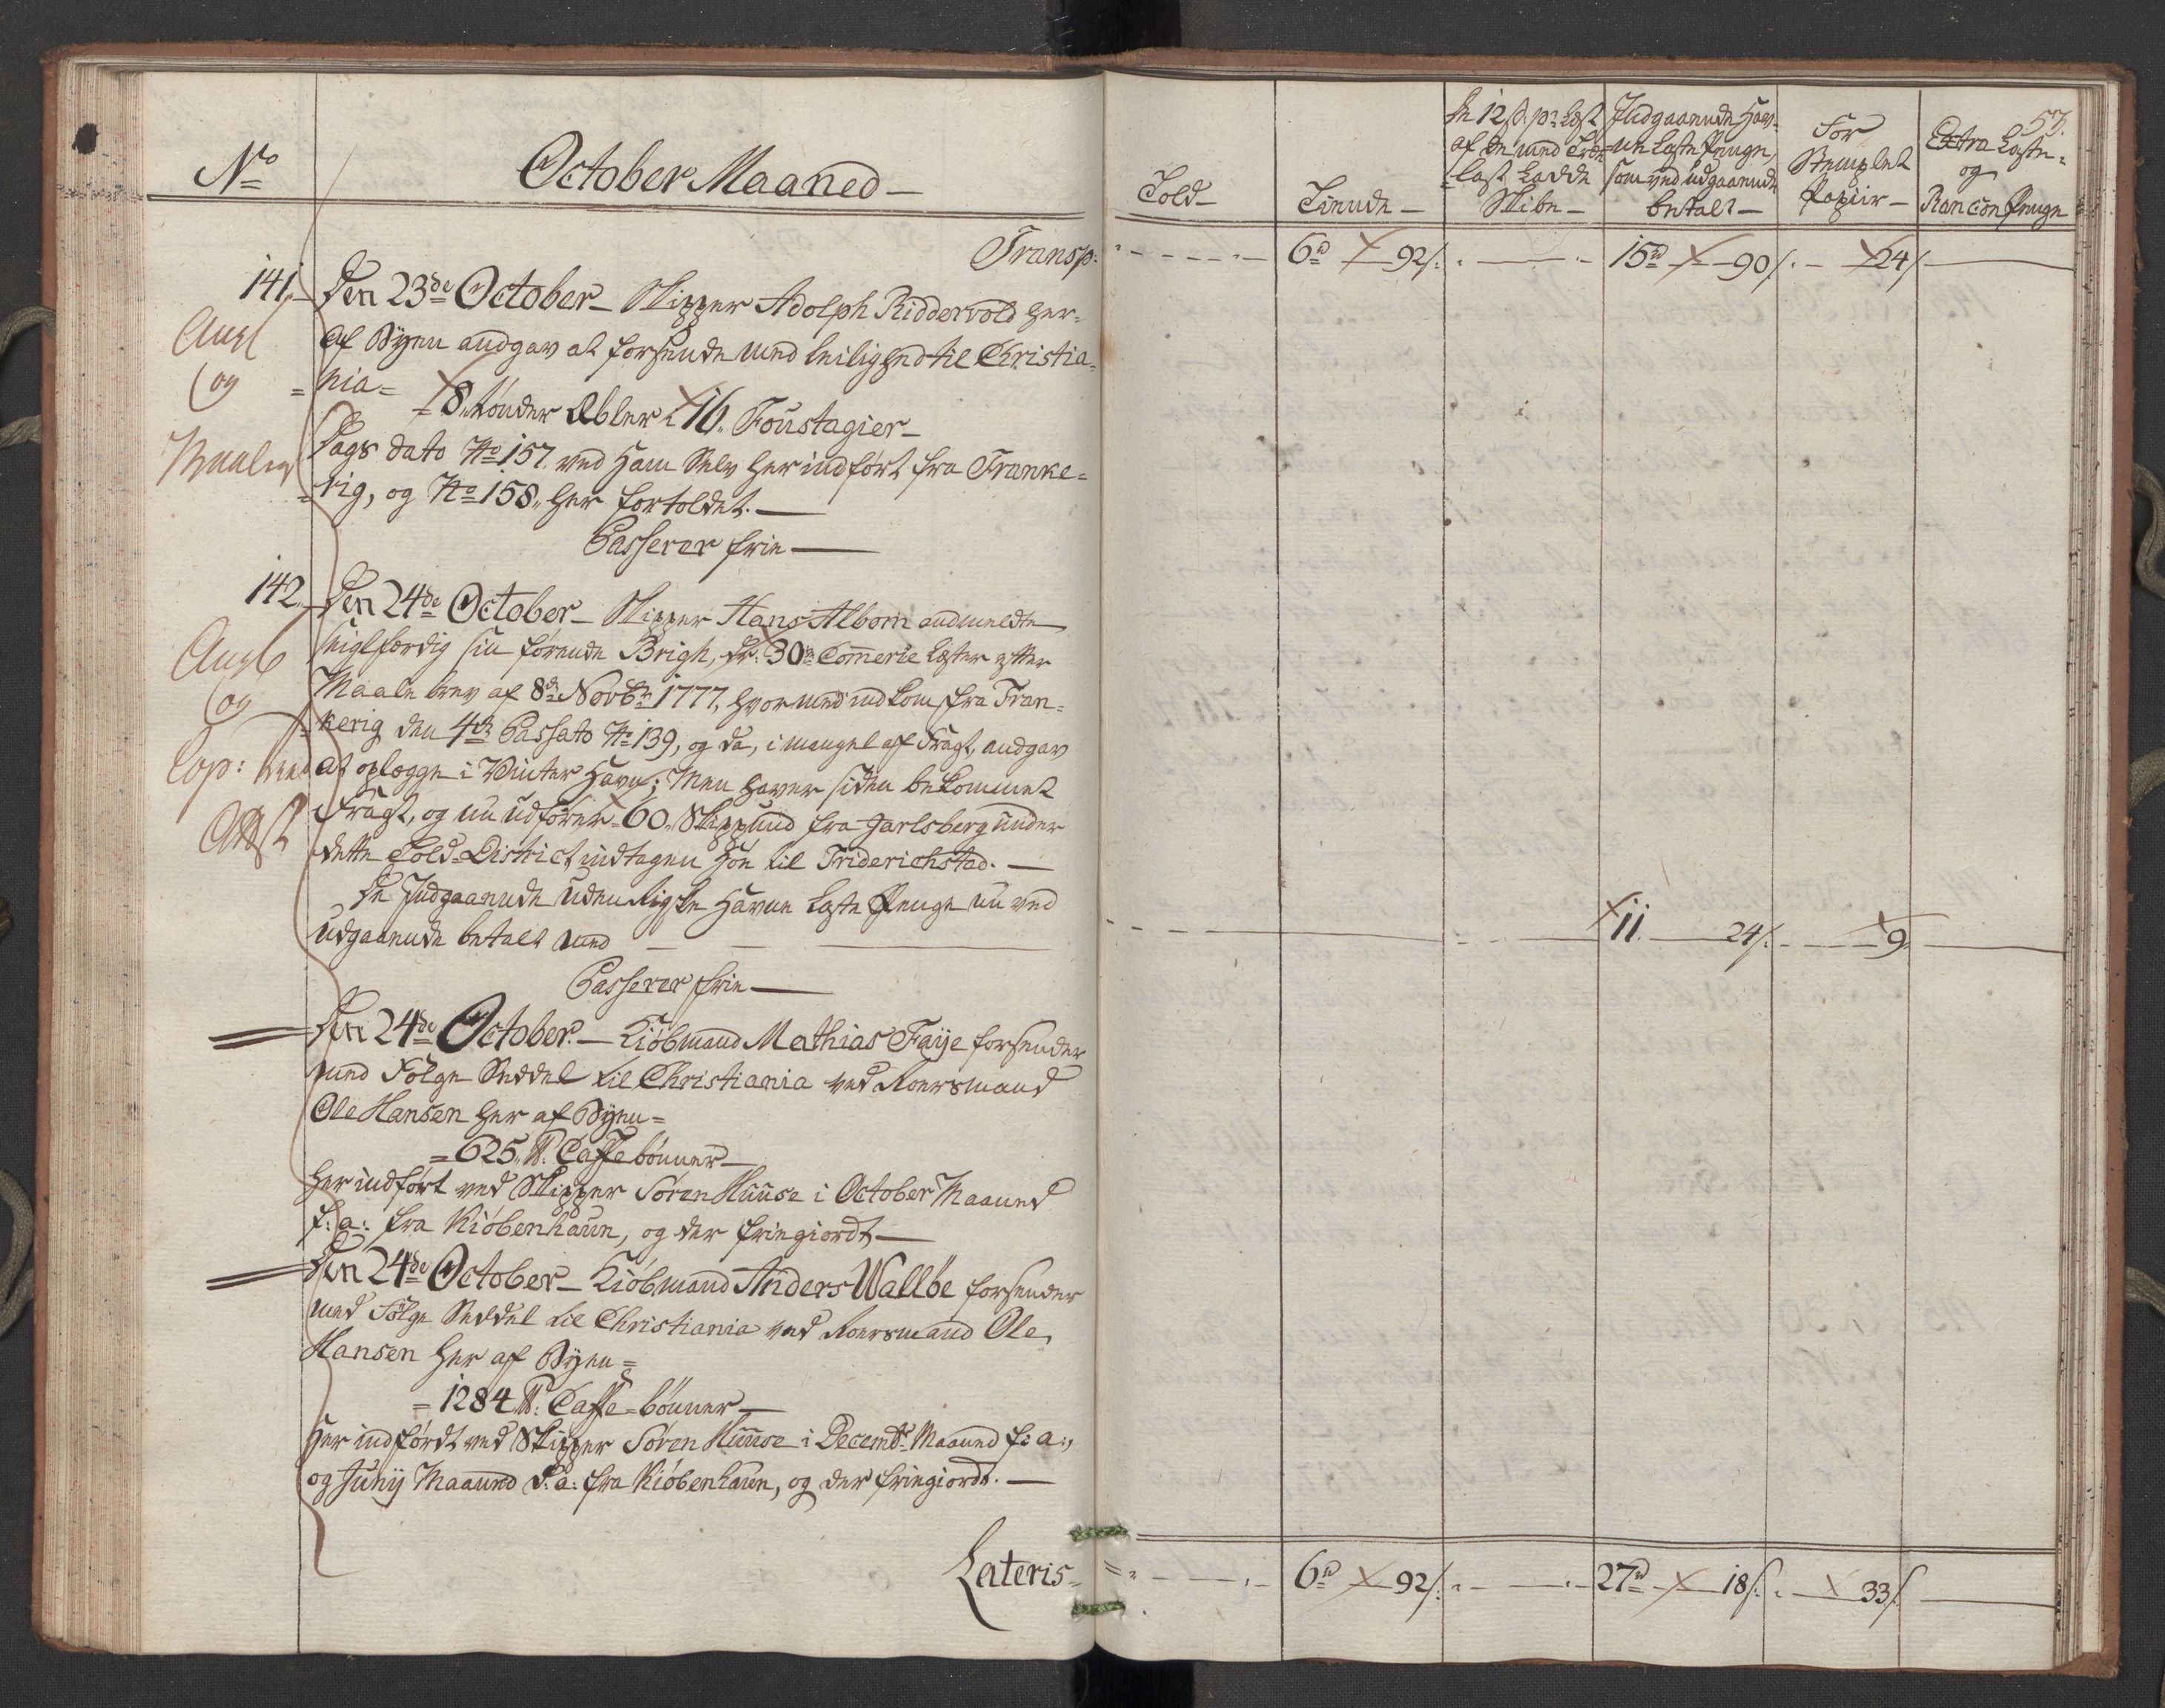 No
October Maaned —
Transp:
141. Den 23de October — Skipper Adolph Riddervold her-
af Byen andgav at forsende med leilighed til Christia-
= nia =
= 8 tönder Æbler i 16. Foustagier —
Dags dato No 157. ved ham selv her indfört fra Franke-
= rig, og No 158. her fortoldet. —
Passerer frie —
Angl
og
142. Den 24de October — Skipper Hans Alborn andmeldte
seiglfærdig sin förende Brigh, dr: 30 Comerie Læster efter
Maale brev af 8de Novbr 1777, hvormed indkom fra Fran-
= kerig den 4de Passato No 139, og da, i mangel af Fragt, andgav
at oplegge i Vinter Havn; Men haver siden bekommet
Fragt, og nu udförer 60. Skippund fra Jarlsberg under
dette Told-District indtagen Höe til Friderichstad. —
De Indgaaende udenrigske Havne Læste Penge nu ved
udgaaende betalt med — — —
Passerer frie —
Angl
og
Attest
Den 24de October. — Kiöbmand Mathias Faije forsender
med Fölge Seddel til Christiania ved Roersmand
Ole Hansen her af Byen =
= 625 ℔. Caffebönner —
her indfört ved Skipper Sören Huuse i October Maaned
f: a: fra Kiöbenhaun, og der friegiordt —
Den 24de October — Kiöbmand Anders Wallöe forsender
med Fölge Seddel til Christiania ved Roersmand Ole
Hansen her af Byen =
= 1284 ℔. Caffe-bönner —
her indfördt ved Skipper Sören Huuse i Decembr Maaned f: a:,
og Junij Maaned d: a: fra Kiöbenhaun, og der friegiordt. —
Lateris —
57.
Told —
Tiende —
De 12 s. pr Læst
af de med Træ-
= last Ladde
Skibe —
Indgaaende Hav-
= ne Læste Penge,
som ved udgaaende
betalt —
For
Stemplet
Papiir —
Extra Læste-
og
Rancon Penge
6rd 92 s. 15rd 90 s. 24 s.
11. 24 s. 9
6rd 92 s. 27rd 18 s. 33 s.